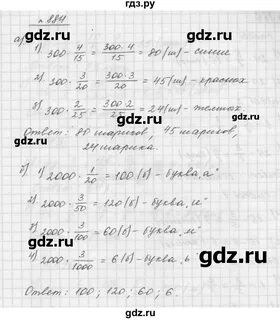 гдз.ру
№ 884
а) 1) 300 · 4/15 = 300·4/15 = 80 (ш) - синие
2) 300 · 3/20 = 300·3/20 = 45 (ш) - красных
3) 300 · 2/25 = 300·2/25 = 24 (ш) - желтых.
Ответ: 80 шариков, 45 шариков,
24 шарика.
б) 1) 2000 · 1/20 = 100 (б) - буква „а"
2) 2000 · 3/50 = 120 (б) - буква „и"
3) 2000 · 3/100 = 60 (б) - буква „м"
4) 2000 · 3/1000 = 6 (б) - буква „ь
Ответ: 100; 120; 60; 6.
gdz.ru